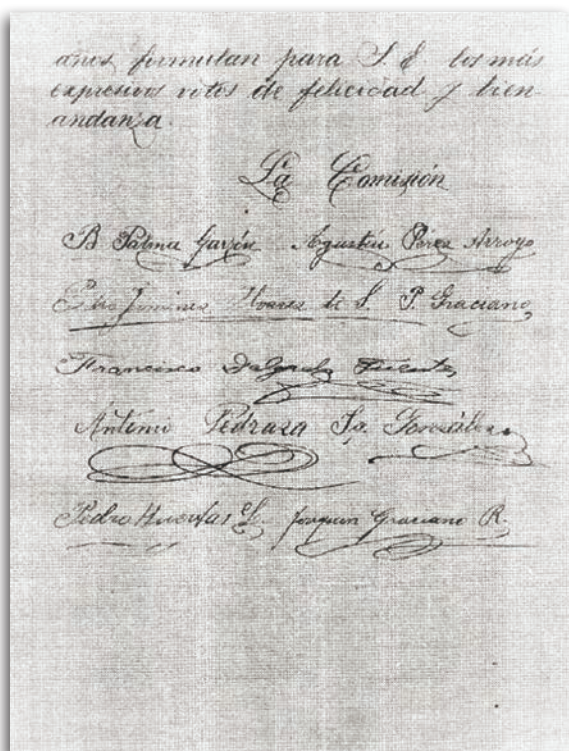 años formulan para S. E. los más
expresivos votos de felicidad y bien
andanza.
La Comisión
B Palma Garzón Agustín Pérez Arroyo
Jiminez de S. P. Graciano
Francisco Delgado Fuente
Antonio Pedraza González
Pedro Huertas Joaquín Graciano R.